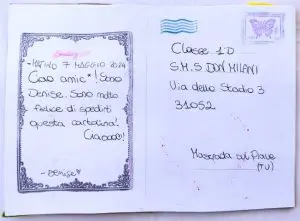 MATINO 7 MAGGIO 2024
Ciao amic*! Sono
Denise. Sono molto
felice di spedirti
questa cartolina!
Ciaoooo!
-DENISE*
Classe 1D
S.M.S DON MILANI
Via dello Stadio 3
31052
Maserada sul Piave
(TV)